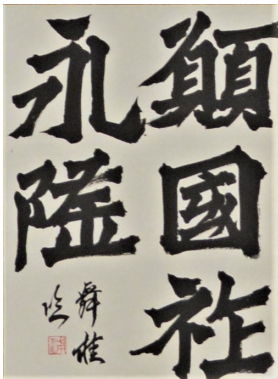 願國祚
永隆
舜
臨